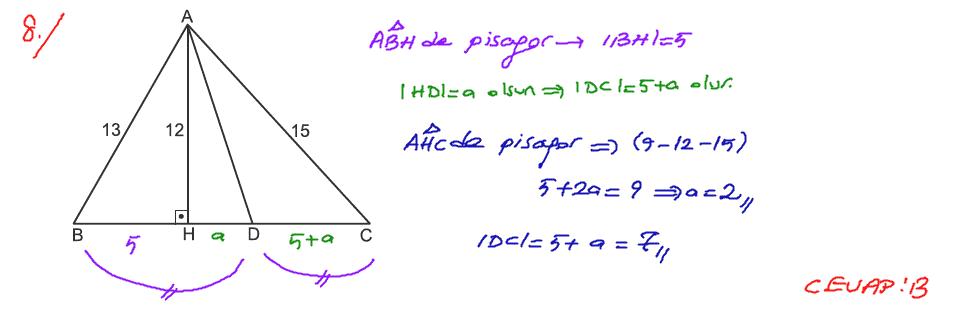 8./
A
ABH de pisagor → |BH|=5
|HD|=a olsun ⇒ |DC|=5+a olur.
13 12 15
AHC de pisagor ⇒ (9-12-15)
5+2a=9 ⇒ a=2//
B H D C
5 a 5+a
|DC|=5+a=7//
CEVAP:B